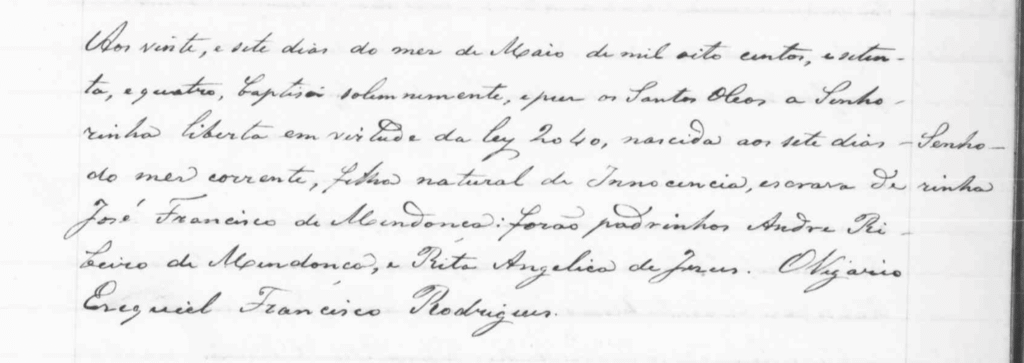 Aos vinte, e sete dias do mez de Maio de mil oito centos, e seten-
ta, e quatro, baptisei solemnemente, e puz os Santos Oleos a Senho-
rinha liberta em virtude da ley 2040, nascida aos sete dias - Senho-
do mez corrente, filha natural de Innocencia, escrava de rinha
José Francisco de Mendonca: forão padrinhos Andre Ri-
beiro de Mendonca, e Rita Angelica de Jezus. O Vigario
Ezequiel Francisco Rodrigues.